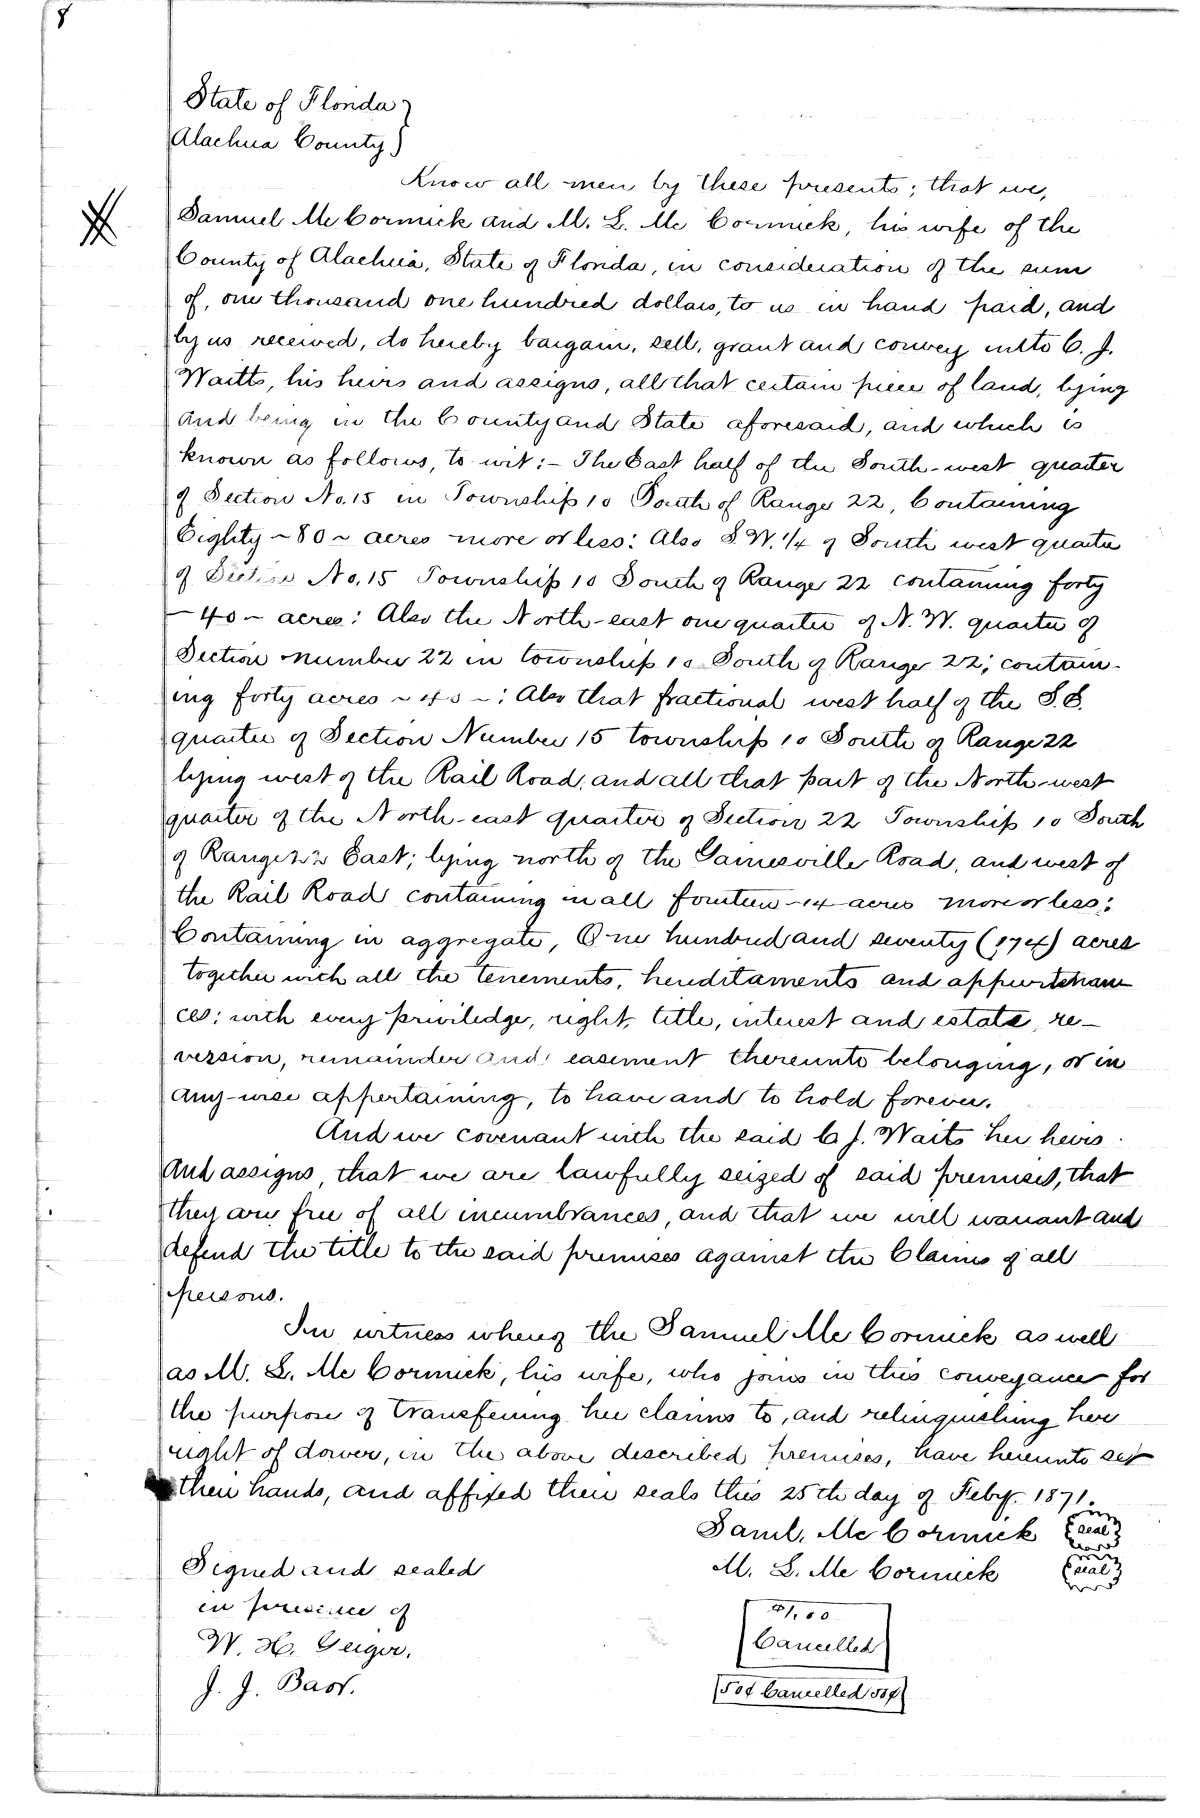 8
State of Florida }
Alachua County }
Know all men by these presents; that we,
Samuel Mc Cormick and M. L. Mc Cormick, his wife of the
County of Alachua, State of Florida, in consideration of the sum
of, one thousand one hundred dollars, to us in hand paid, and
by us received, do hereby bargain, sell, grant and convey unto C. J.
Waitts, his heirs and assigns, all that certain piece of land, lying
and being in the County and State aforesaid, and which is
known as follows, to wit:- The East half of the South-west quarter
of Section No. 15 in Township 10 South of Range 22, Containing
Eighty ~80~ acres more or less: Also S.W. 1/4 of South west quarter
of Section No. 15 Township 10 South of Range 22 containing forty
-40- acres: Also the North-east one quarter of N. W. quarter of
Section number 22 in township 10 South of Range 22; contain-
ing forty acres ~40~: Also that fractional west half of the S. E.
quarter of Section Number 15 township 10 South of Range 22
lying west of the Rail Road, and all that part of the North-west
quarter of the North-east quarter of Section 22 Township 10 South
of Range 22 East; lying north of the Gainesville Road, and west of
the Rail Road containing in all fourteen -14- acres more or less:
Containing in aggregate, One hundred and seventy (174) acres
together with all the tenements, hereditaments and appurtenan
ces; with every priviledge, right, title, interest and estate, re-
version, remainder and easement thereunto belonging, or in
any-wise appertaining, to have and to hold forever.
And we covenant with the said C. J. Waits her heirs
and assigns, that we are lawfully seized of said premises, that
they are free of all incumbrances, and that we will warrant and
defend the title to the said premises against the Claims of all
persons.
In witness whereof the Samuel Mc Cormick as well
as M. L. Mc Cormick, his wife, who joins in this conveyance for
the purpose of transferring her claims to, and relinquishing her
right of dower, in the above described premises, have hereunto set
their hands, and affixed their seals this 25th day of Feby. 1871.
Saml. Mc Cormick seal
M. L. Mc Cormick seal
Signed and sealed
in presence of
W. H. Geiger.
J. J. Barr.
$1.00
Cancelled
50¢ Cancelled 50¢